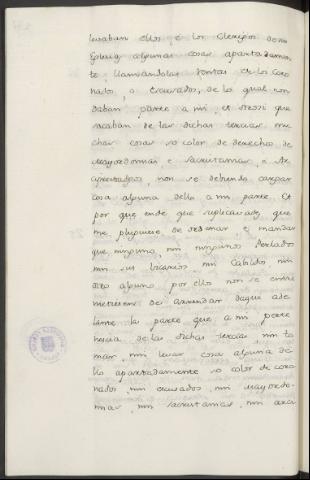 levaban ellos, é los Clerigos de mi
Iglesia algunas cosas apartadamen-
te, llamandolas dontas es los coro-
nados, o escusados, de lo qual non
daban parte a mi, et otrosi que
sacaban de las dichas tercias mu-
chas cosas so color de derechos de
Mayordomias e sacristanias, e de
apreciadgos, non se debiendo sacar
cosa alguna dello a mi parte. Et
por que ende que suplicabades que
me pluguiese de ordenar e mandar
que ninguno, nin ningunos Perlados
nin sus Vicarios nin Cabildos nin
otro alguno por ellos non se entre
metiesen de arrendar daqui ade-
lante la parte que a mi perte-
nescia de las dichas tercias nin to-
mar, nin levar cosa alguna de
llo apartadamente so color de coro-
nados, nin escusados, nin mayordo-
mias, nin sacristanias, nin arci